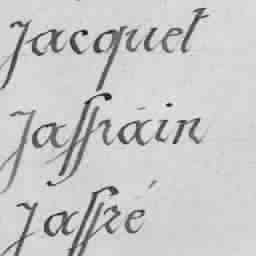 Jacquet
Jassrain
Jassré